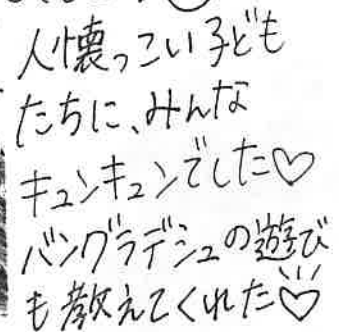 人懐っこい子ども
たちに、みんな
キュンキュンでした♡
バングラデシュの遊び
も教えてくれた♡